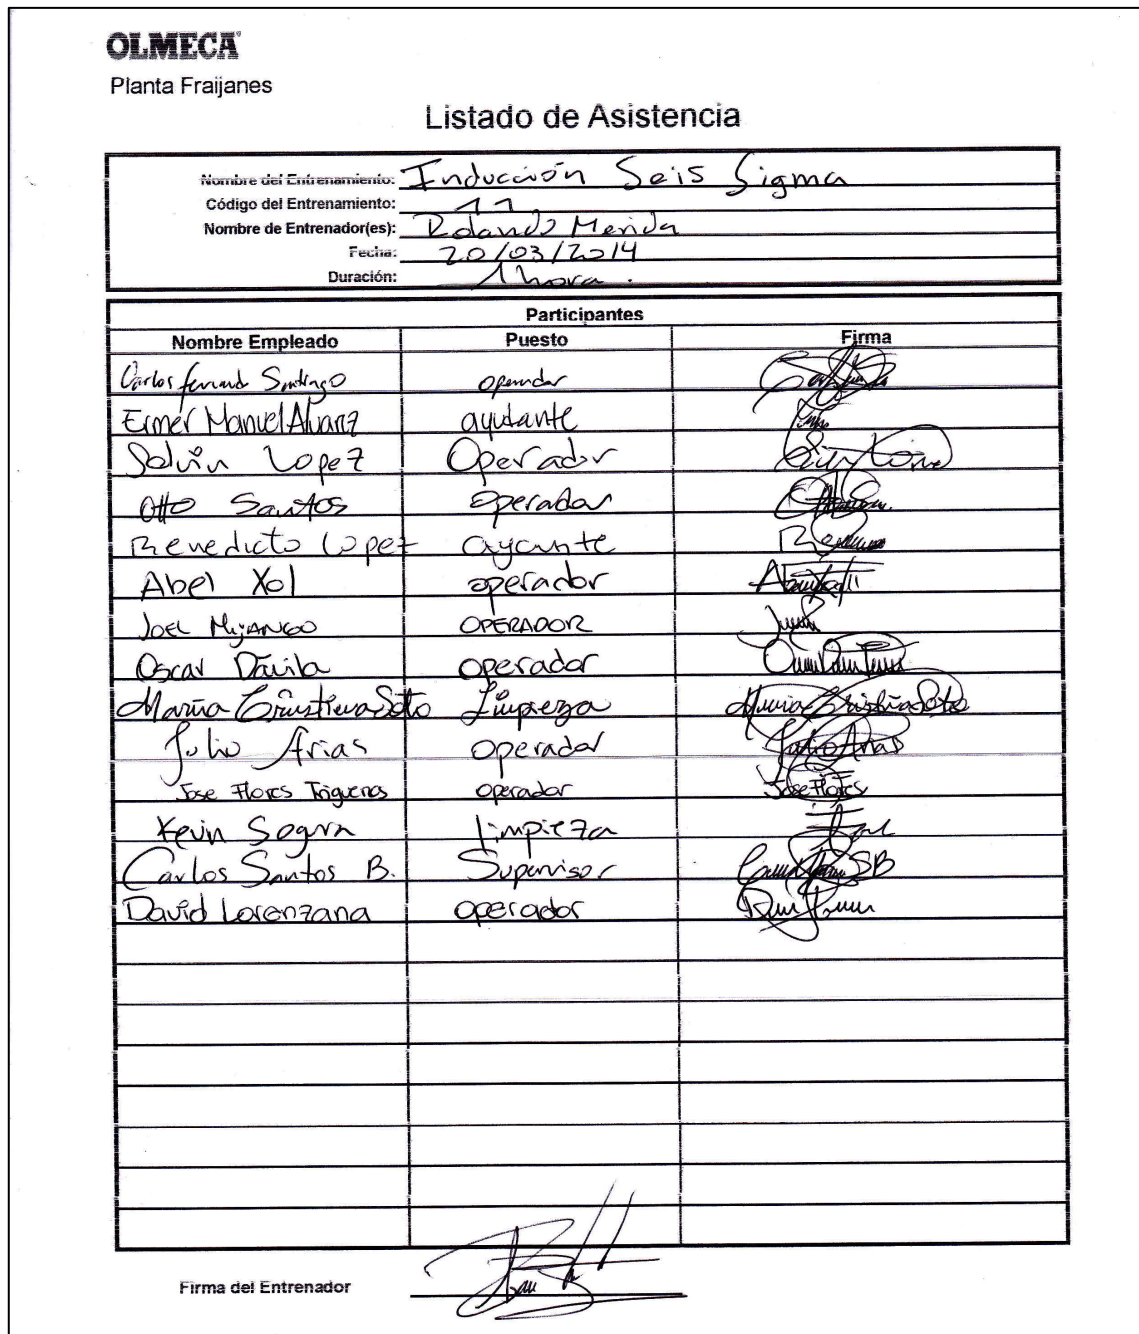 OLMECA
Planta Fraijanes
Listado de Asistencia
Nombre del Entrenamiento: Inducción Seis Sigma
Código del Entrenamiento: 11
Nombre de Entrenador(es): Rolando Merida
Fecha: 20/03/2014
Duración: 1 hora.
Participantes
Nombre Empleado Puesto Firma
Carlos Santiago operador
Ermer Manuel Alvarez ayudante
Selvin Lopez Operador
Otto Santos operador
Benedicto Lopez
Abel Xol operador
JOEL MIJANGO OPERADOR
Oscar Dávila operador
Maria Cristina Soto Limpieza Maria Cristina Soto
Julio Arias operador Julio Arias
Jose Flores Trigueros operador Jose Flores
Kevin limpieza
Carlos Santos B. Supervisor SB
David Lorenzana operador
Firma del Entrenador